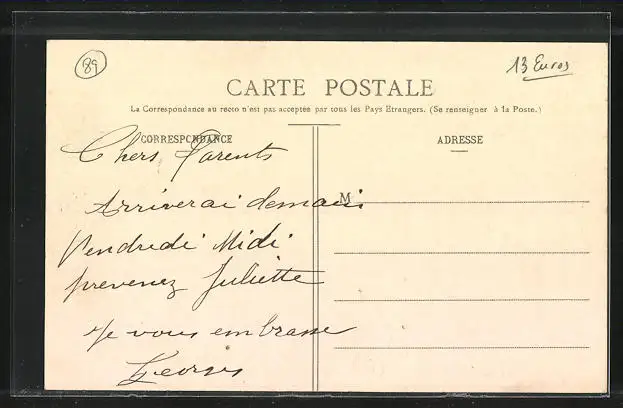 89
13 Euros
CARTE POSTALE
La Correspondance au recto n'est pas acceptée par tous les Pays Etrangers. (Se renseigner à la Poste.)
CORRESPONDANCE
ADRESSE
M
Chers Parents
Arriverai demain
Vendredi Midi
prevenez Juliette
Je vous embrasse
Georges